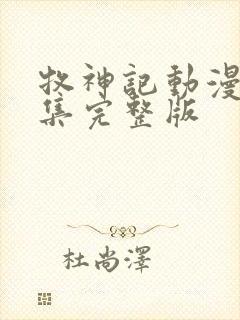 牧神記動漫
集完整版
杜尚澤